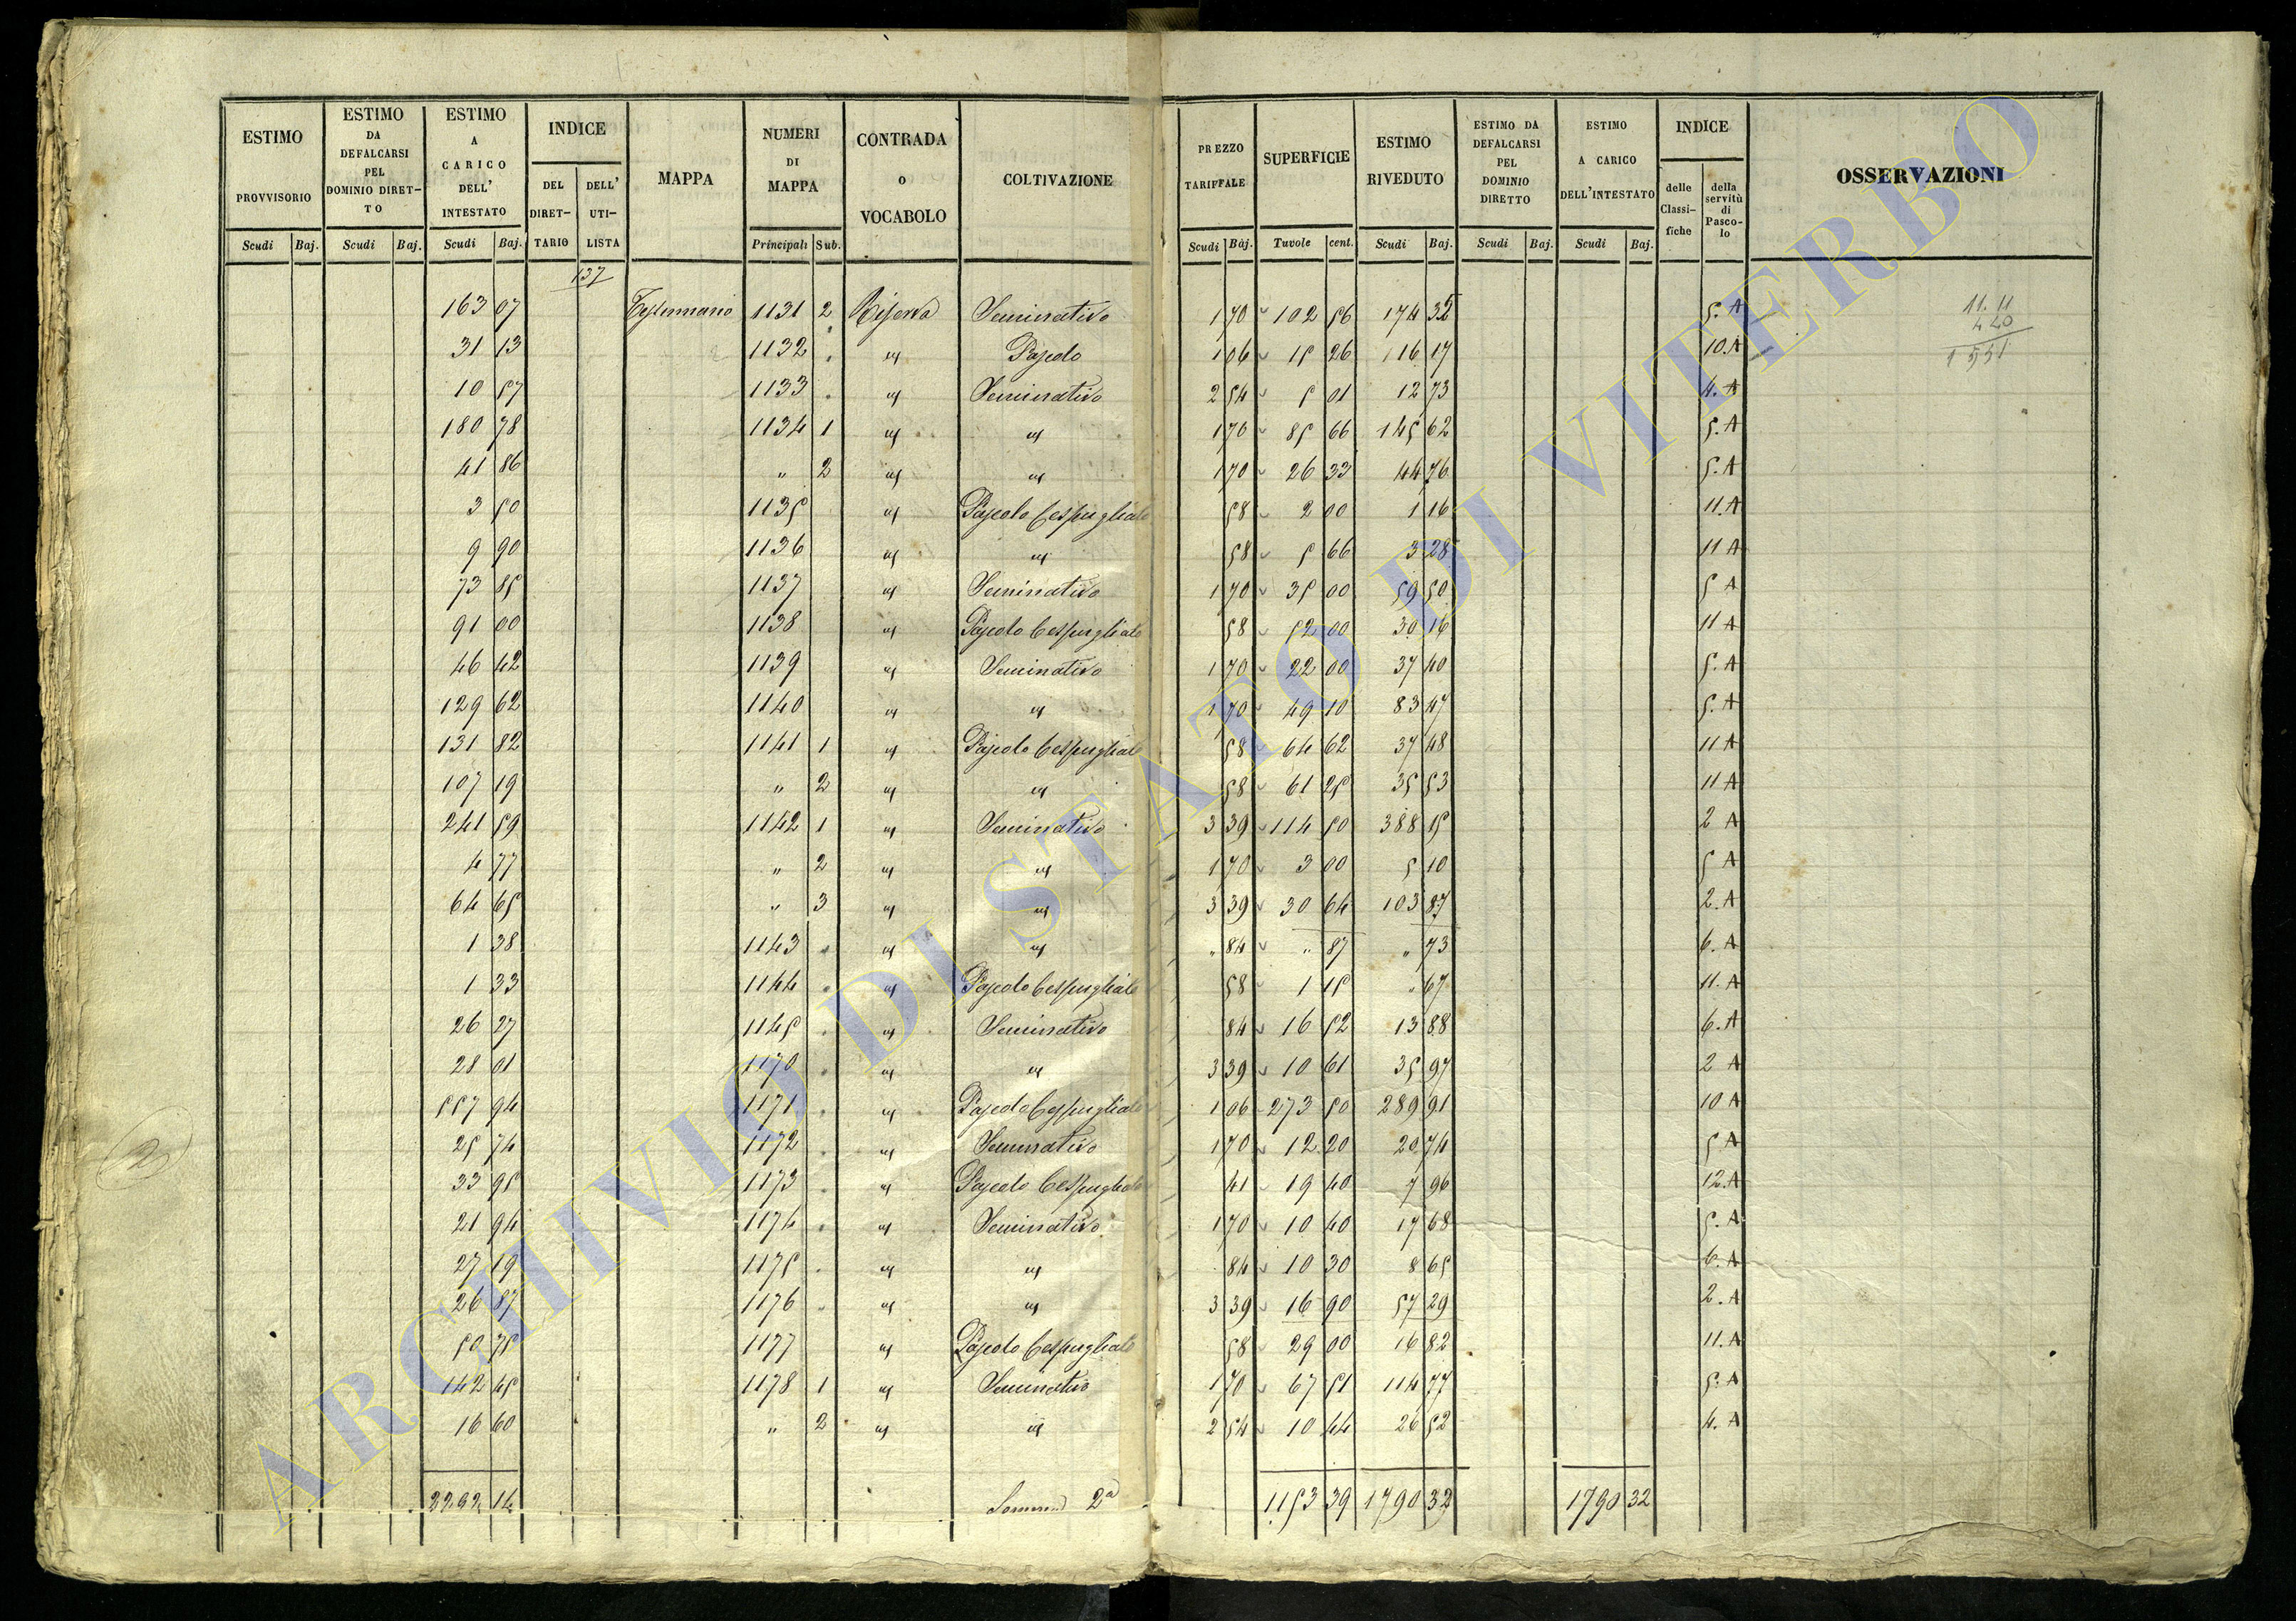 ESTIMO PROVVISORIO Scudi Baj. | ESTIMO DA DEFALCARSI PEL DOMINIO DIRET-TO Scudi Baj. | ESTIMO A CARICO DELL' INTESTATO Scudi Baj. | INDICE DEL DIRET-TARIO DELL' UTI-LISTA | MAPPA | NUMERI DI MAPPA Principali Sub. | CONTRADA O VOCABOLO | COLTIVAZIONE | PREZZO TARIFFALE Scudi Baj. | SUPERFICIE Tavole cent. | ESTIMO RIVEDUTO Scudi Baj. | ESTIMO DA DEFALCARSI PEL DOMINIO DIRETTO Scudi Baj. | ESTIMO A CARICO DELL'INTESTATO Scudi Baj. | INDICE delle Classi-fiche della servitù di Pasco-lo | OSSERVAZIONI
137
163 07 1131 2 Riserva Seminativo 1 70 102 56 174 35 5. A 11.11
31 13 1132 id Pascolo 1 06 15 26 16 17 10. A 4 40
10 57 1133 id Seminativo 2 54 5 01 12 73 4. A 1551
180 78 1134 1 id id 1 70 85 66 145 62 5. A
41 86 " 2 id id 1 70 26 33 44 76 5. A
3 50 1135 id Pascolo Cespugliato 58 2 00 1 16 11. A
9 90 1136 id id 58 5 66 3 28 11 A
73 85 1137 id Seminativo 1 70 35 00 59 50 5 A
91 00 1138 id Pascolo Cespugliato 58 52 00 30 16 11 A
46 42 1139 id Seminativo 1 70 22 00 37 40 5. A
129 62 1140 id id 1 70 49 10 83 47 5. A
131 82 1141 1 id Pascolo Cespugliato 58 64 62 37 48 11 A
107 19 " 2 id id 58 61 25 35 53 11 A
241 59 1142 1 id Seminativo 3 39 114 50 388 15 2 A
4 77 " 2 id id 1 70 3 00 5 10 5 A
64 65 " 3 id id 3 39 30 64 103 87 2. A
1 38 1143 id id " 84 " 87 " 73 6. A
1 33 1144 id Pascolo Cespugliato 58 1 15 " 67 11. A
26 27 1145 id Seminativo 84 16 52 13 88 6. A
28 01 1170 id id 3 39 10 61 35 97 2 A
557 94 1171 id Pascolo Cespugliato 1 06 273 50 289 91 10 A
25 74 1172 id Seminativo 1 70 12 20 20 74 5 A
33 95 1173 id Pascolo Cespugliato 41 19 40 7 96 12. A
21 94 1174 id Seminativo 1 70 10 40 17 68 5. A
27 19 1175 id id 84 10 30 8 65 6. A
26 87 1176 id id 3 39 16 90 57 29 2. A
50 75 1177 id Pascolo Cespugliato 58 29 00 16 82 11. A
142 45 1178 1 id Seminativo 1 70 67 51 114 77 5. A
16 60 " 2 id id 2 54 10 44 26 52 4. A
2292 14 Somma 2ª 1153 39 1790 32 1790 32
2
ARCHIVIO DI STATO DI VITERBO